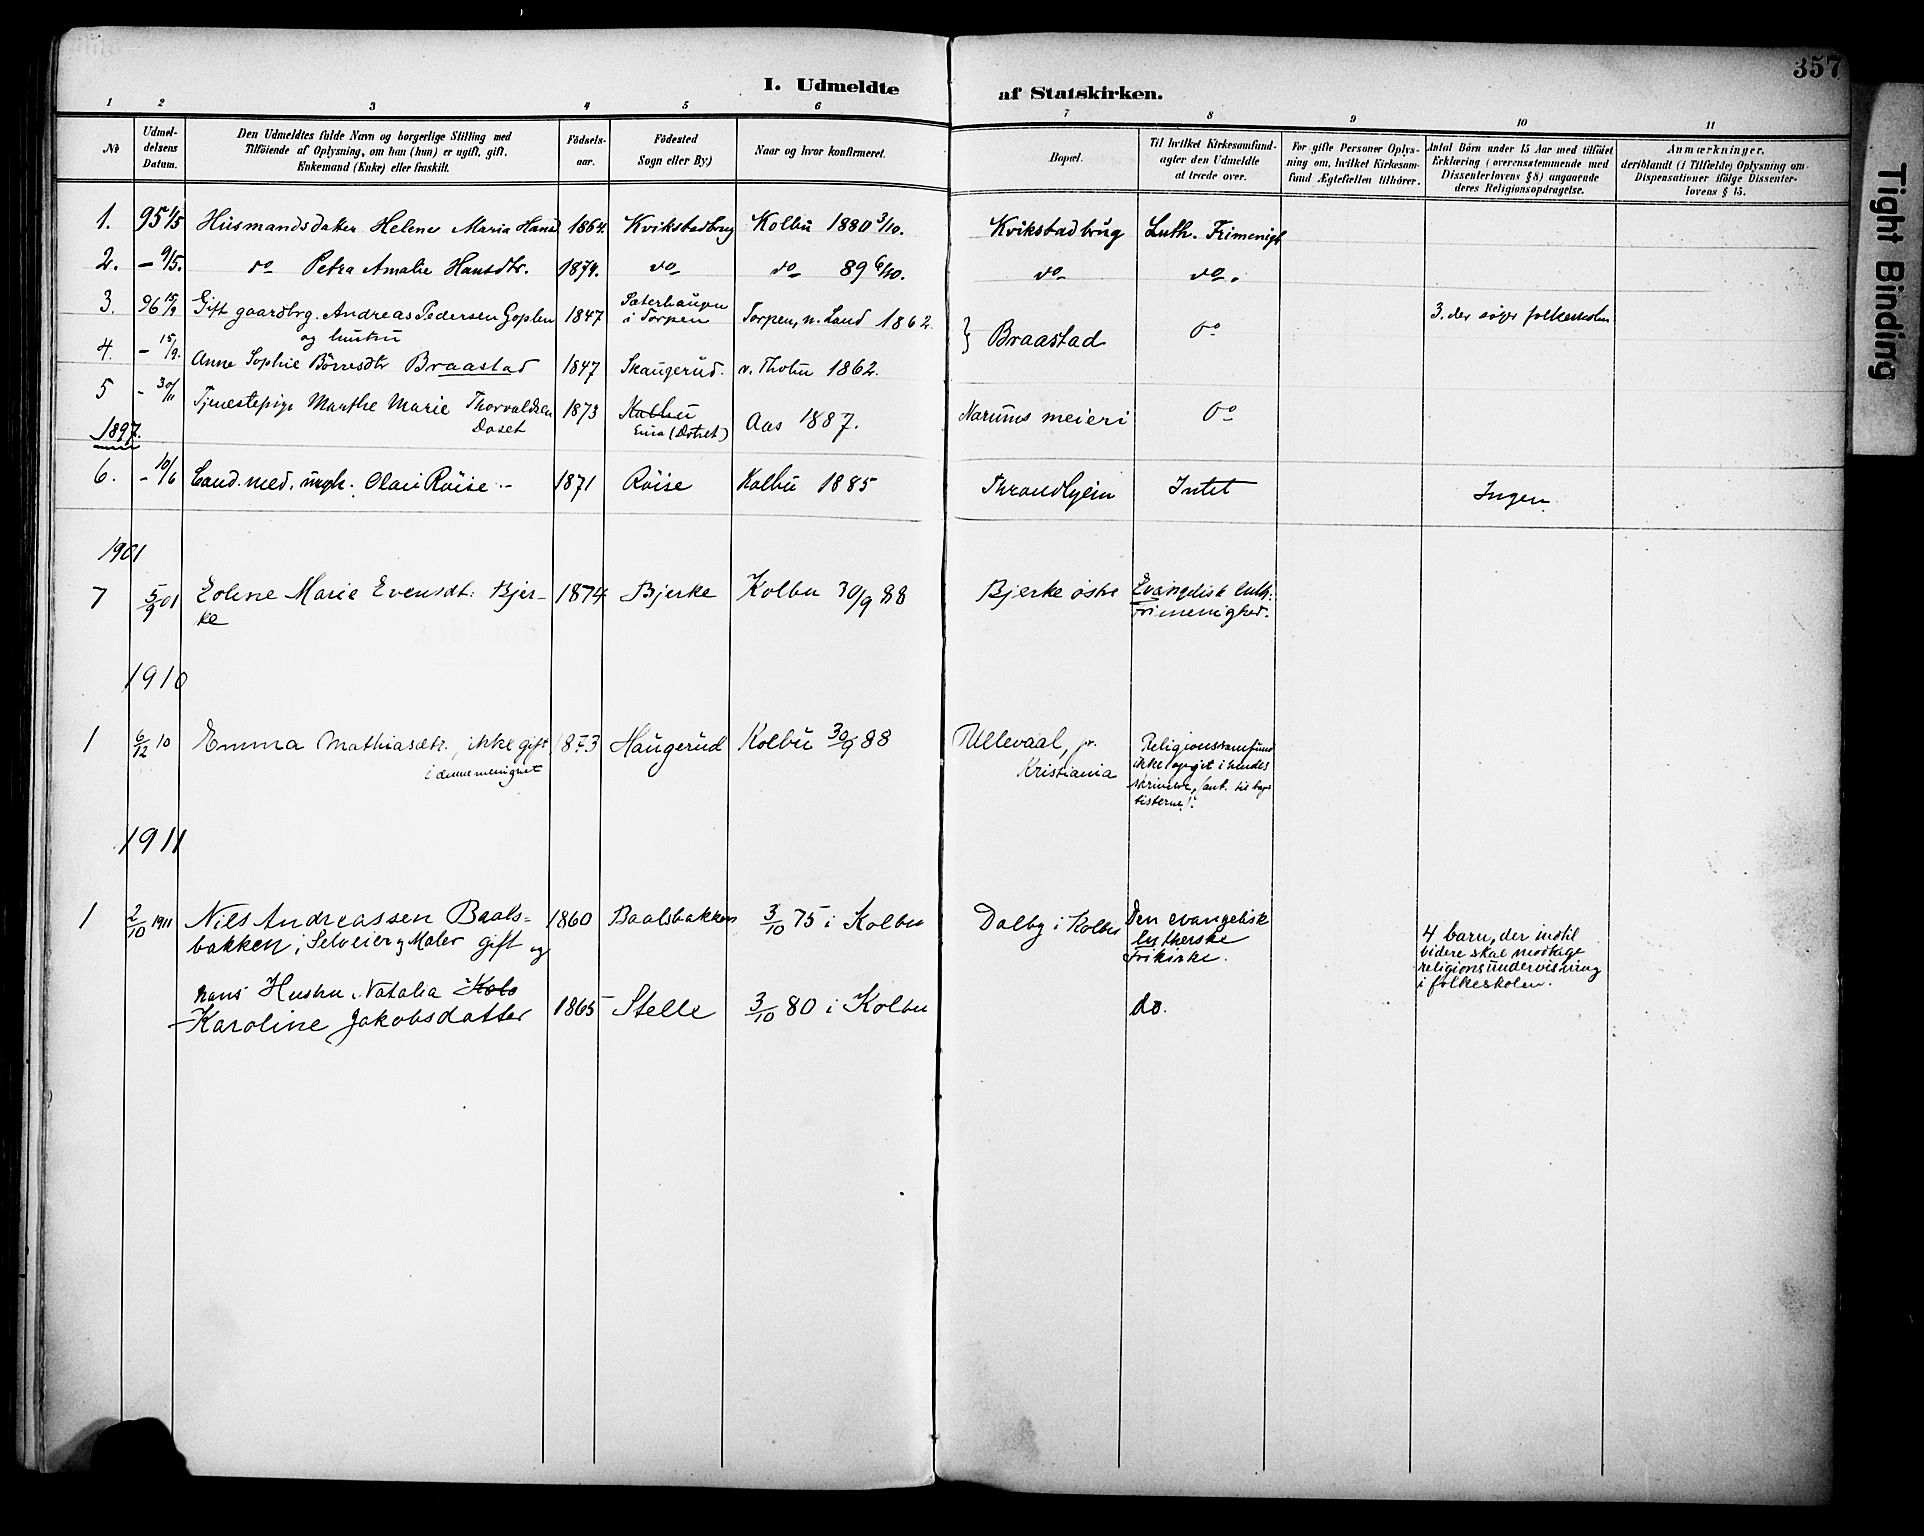 357
I. Udmeldte af Statskirken.
1 2 3 4 5 6 7 8 9 10 11
No
Udmel-
delsens
Datum.
Den Udmeldtes fulde Navn og borgerlige Stilling med
Tilföiende af Oplysning, om han (hun) er ugift, gift,
Enkemand (Enke) eller fraskilt.
Födsels-
aar.
Födested
Sogn eller By.)
Naar og hvor konfirmeret.
Bopæl.
Til hvilket Kirkesamfund-
agter den Udmeldte
at træde over.
For gifte Personer Oplys-
ning om, hvilket Kirkesam-
fund Ægtefællen tilhörer.
Antal Börn under 15 Aar med tilföiet
Erklæring (overensstemmende med
Dissenterlovens § 8) angaaende
deres Religionsopdragelse.
Anmærkninger,
deriblandt (i Tilfælde) Oplysning om
Dispensationer ifölge Dissenter-
lovens § 15.
1. 95 1/5 Husmandsdatter Helene Maria Hansd 1864 Kvikstadbrug Kolbu 1880 3/10. Kvikstadbrug Luth. Frimenigh
2. - 9/5. do Petra Amalie Hansdtr. 1874. do do 89 6/10. do do.
3. 96 15/9 Gift gaardbrg. Andreas Pedersen Goplen 1847 Sæterhaugen
i Torpen Torpen, n. Land 1862. } Braastad Do 3. der söger folkeskolen
og hustru
4. - 15/9. Anne Sophie Börresdtr Braastad 1847 Skaugerud. v. Thoten 1862.
5 - 30/11 Tjenestepige Marthe Marie Thorvaldsen
Doset 1873 Kolbu
Eina (Dotset) Aas 1887. Narums meieri Do
1897.
6. - 10/6 Cand. med. ungk. Olai Röise - 1871 Röise Kolbu 1885 Throndhjem Intet Ingen
1901
7 5/9 01 Eoline Marie Evensdt: Bjer-
ke 1874 Bjerke Kolbu 30/9 88 Bjerke östre Evangelisk luth.
Frimenighed.
1910
1 6/12 10 Emma Mathiasdtr., ikke gift
i denne menighet 1873 Haugerud Kolbu 30/9 88 Ullevaal, pr.
Kristiania Religionssamfund
ikke opgit i hendes
skrivelse, (ant. til bap
tisterne!).
1911
1 2/10 1911 Nils Andreassen Baals-
bakken, Selveier og Maler gift og 1860 Baalsbakken 3/10 75 i Kolbu Dalby i Kolbu Den evangelisk
lutherske
Frikirke. 4 barn, der indtil
videre skal modtage
religionsundervisning
i folkeskolen.
hans Hustru Natalia
Karoline Jakobsdatter 1865 Stelle 3/10 80 i Kolbu do.
Tight Binding